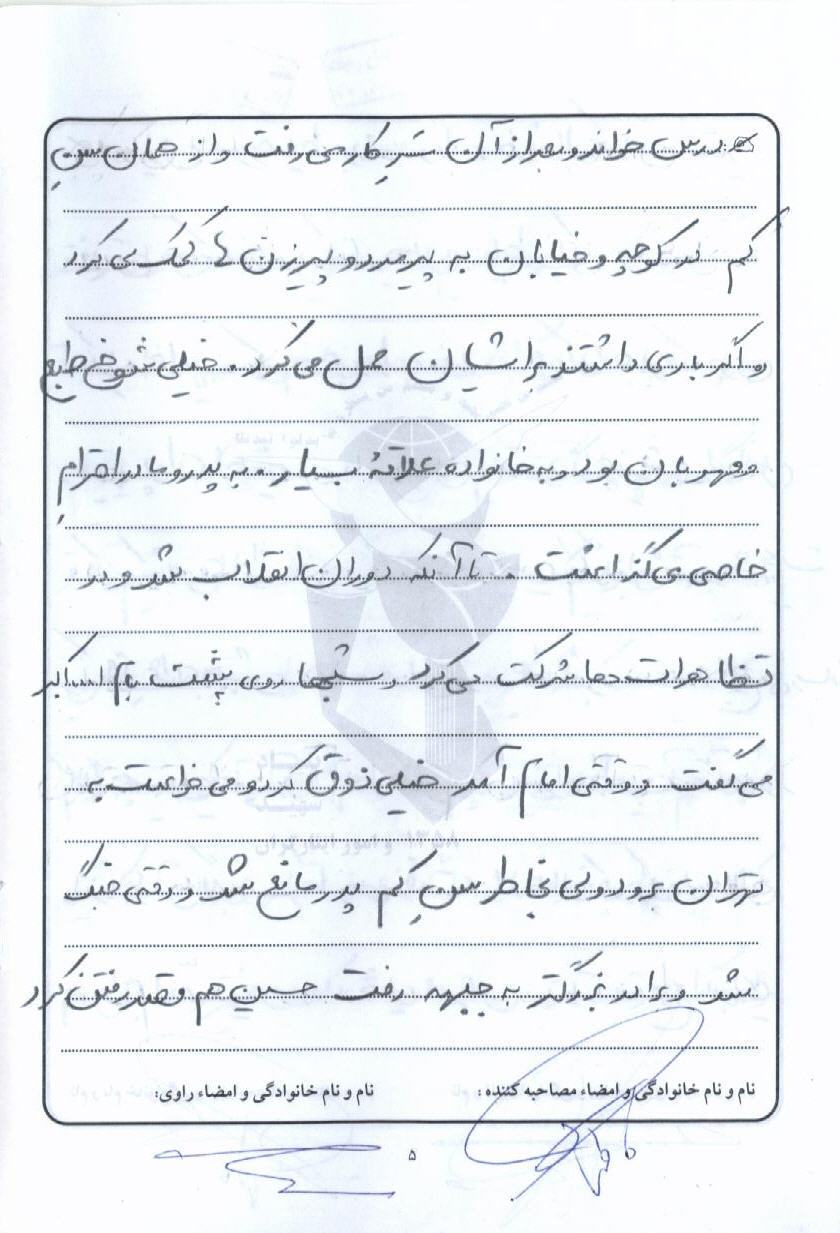 درس خواند و بعد از آن سرِ کار می رفت و از همان سنِ
کم در کوچه و خیابان به پیرمرد و پیرزن ها کمک می کرد
و اگر باری داشتند برایشان حمل می کرد. خیلی شوخ طبع
و مهربان بود و به خانواده علاقهٔ بسیار. به پدر و مادر احترامِ
خاصی می گذاشت. تا آنکه دوران انقلاب شد و در
تظاهرات ها شرکت می کرد و شبها روی پشت بام الله اکبر
می گفت و وقتی امام آمد خیلی ذوق کرد و می خواست به
تهران برود ولی بخاطر سنِ کم پدر مانع شد و وقتی جنگ
شد و برادر بزرگتر به جبهه رفت حسین هم قصد رفتن کرد
نام و نام خانوادگی و امضاء مصاحبه کننده: نام و نام خانوادگی و امضاء راوی:
۵